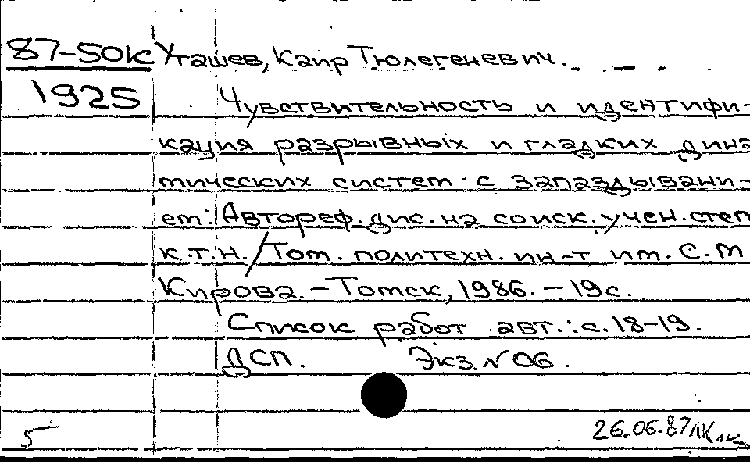 87-50к Уташев, Каир Тюлегеневич.
1925 Чувствительность и идентифи-
кация разрывных и гладких дина
мических систем с запаздывани-
ем: Автореф. дис. на соиск. учен. степ
к.т.н. / Том. политехн. ин-т им. С.М
Кирова. - Томск, 1986. - 19с.
Список работ авт.: с. 18-19.
ДСП. Экз. N 06.
5 26.06.87